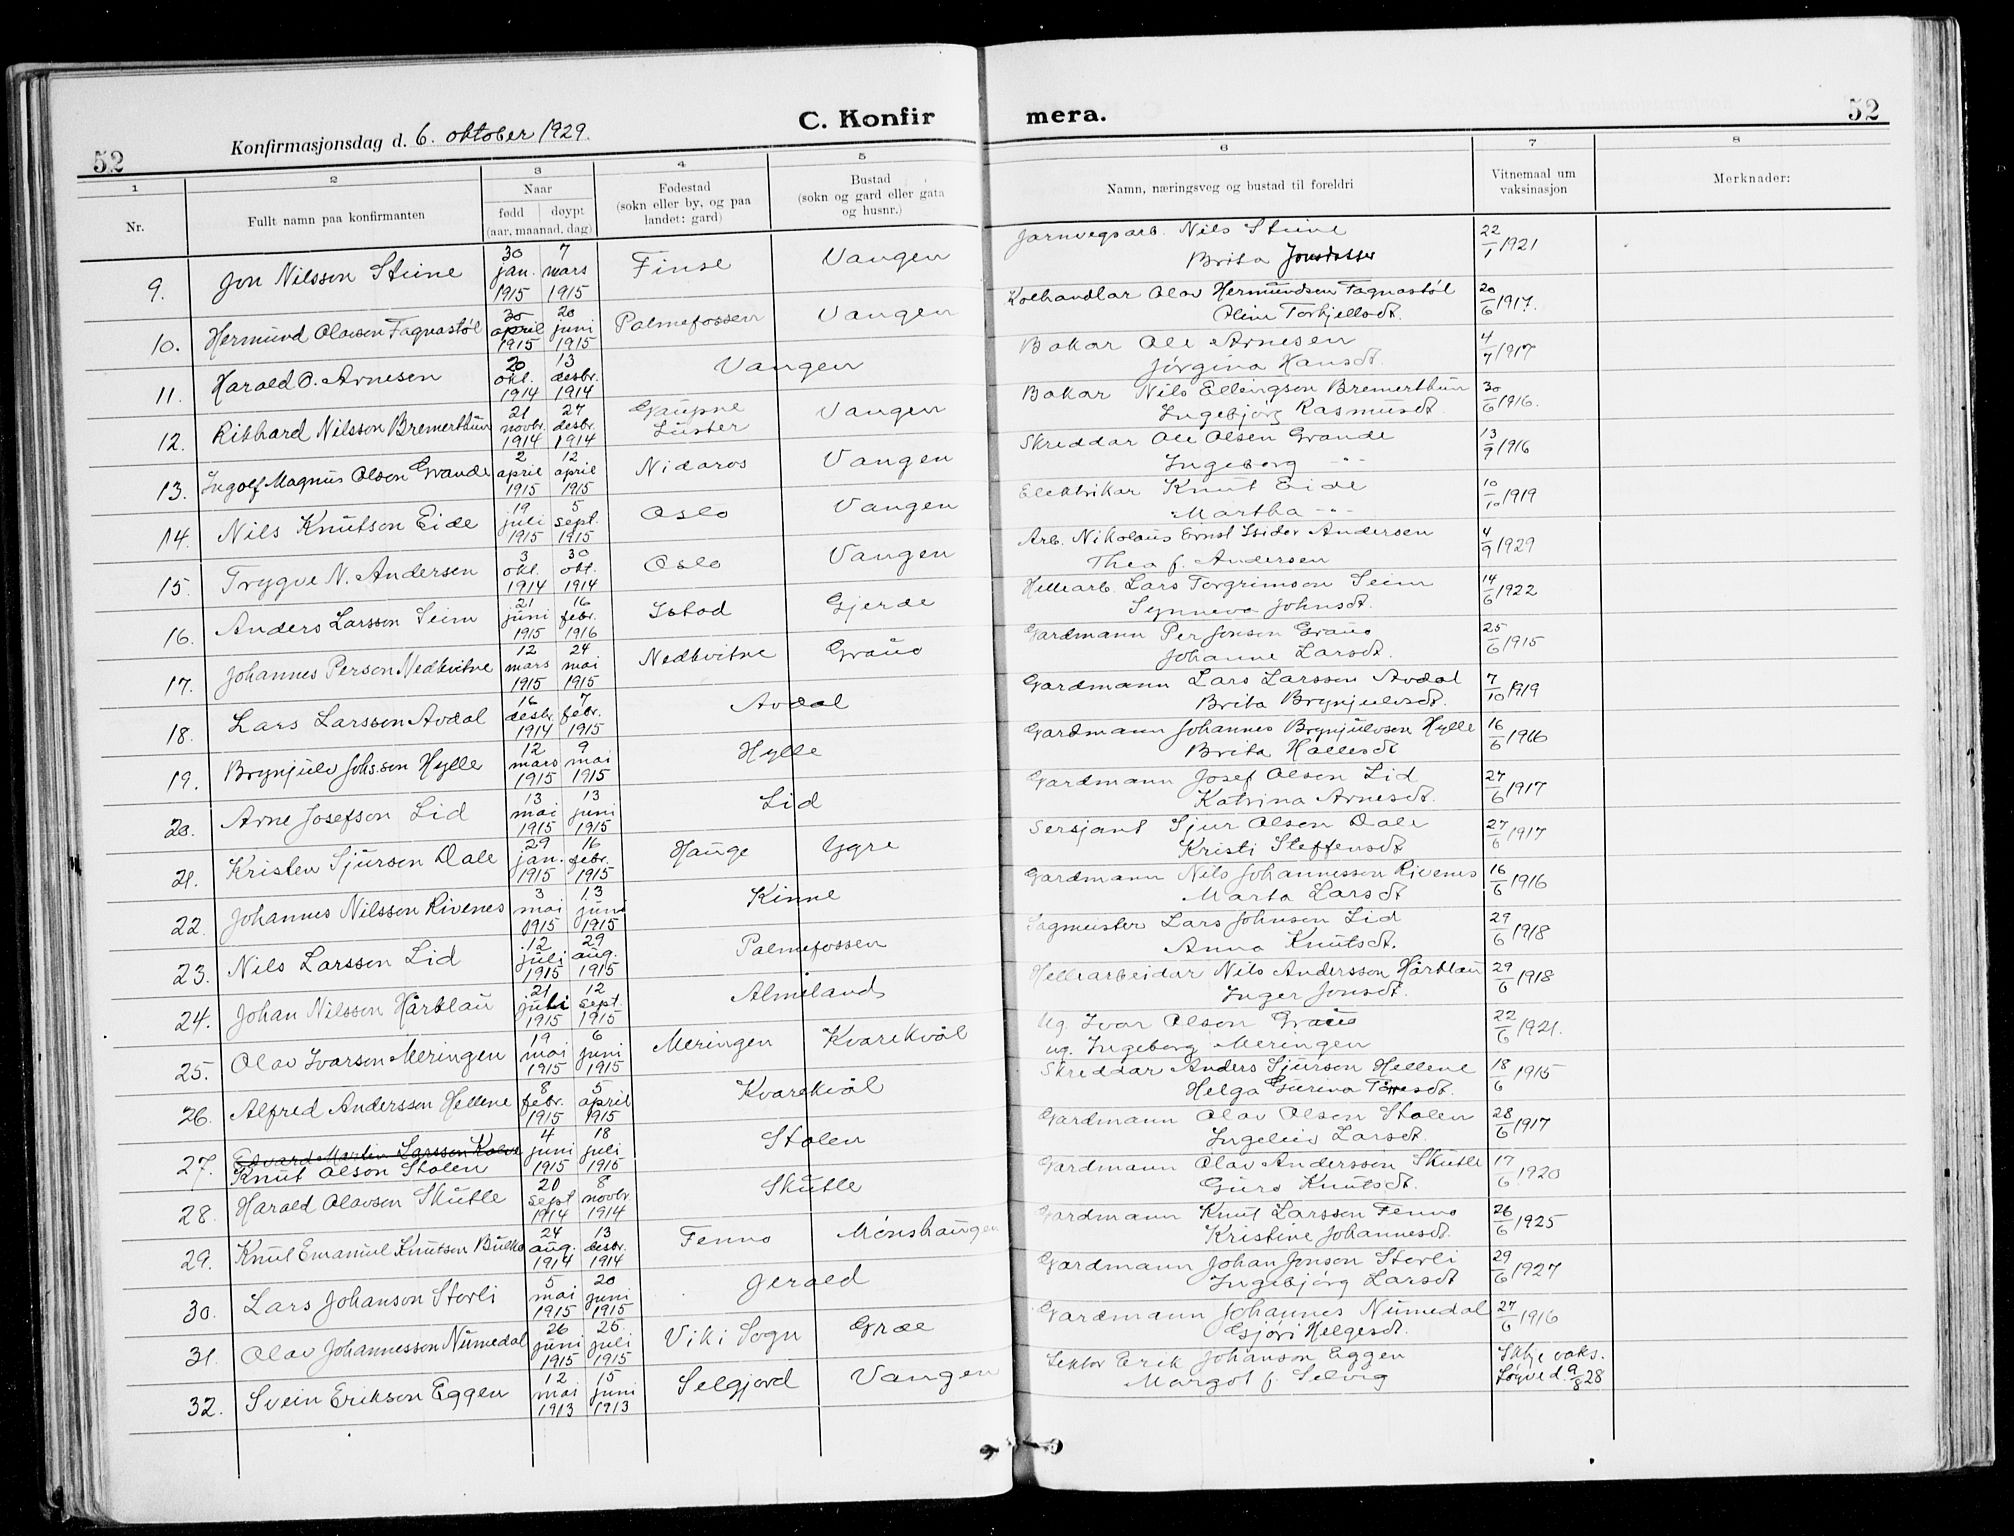 52
Konfirmasjonsdag d. 6. oktober 1929.
C. Konfir
mera.
52
1 2 3 4 5 6 7 8
Nr.
Fullt namn paa konfirmanten
Naar
fødd døypt
(aar, maanad, dag)
Fødestad
(sokn eller by, og paa
landet: gard)
Bustad
(sokn og gard eller gata
og husnr.)
Namn, næringsveg og bustad til foreldri
Vitnemaal um
vaksinasjon
Merknader:
9. Jon Nilsson Stine 30 jan. 1915 7 mars 1915 Finse Vangen Jarnvegsarb. Nils Stine 22/1 1921
Brita Jonsdotter
10. Hermund Olavsen Fagnastøl 30 april 1915 20 juni 1915 Palmefossen Vangen Kolhandlar Olav Hermundsen Fagnastøl 20/6 1917.
Oline Torkjellsdt.
11. Harald O. Arnesen 20 okt. 1914 13 desbr. 1914 Vangen Bakar Ole Arnesen 4/7 1917
Jørgina Hansdt.
12. Rikhard Nilsson Bremerthun 21 novbr. 1914 27 desbr. 1914 Gaupne Luster Vangen Bakar Nils Ellingson Bremerthun 30/6 1916.
Ingebjorg Rasmusdt.
13. Ingolf Magnus Olson Grande 2 april 1915 12 april 1915 Nidaros Vangen Skreddar Ole Olsen Grande 13/9 1916
Ingeborg -"-
14. Nils Knutson Eide 19 juli 1915 5 sept. 1915 Oslo Vangen Elektrikar Knut Eide 10/10 1919
Martha -"-
15. Trygve N. Andersen 3 okt. 1914 30 okt. 1914 Oslo Vangen Arb. Nikolaus Ernst Isidor Andersen 4/9 1929
Thea f. Andersen
16. Anders Larsson Seim 21 juni 1915 16 febr. 1916 Istad Gjerde Hellearb. Lars Torgrimson Seim 14/6 1922
Synneva Johnsdt.
17. Johannes Person Nedkvitne 12 mars 1915 24 mai 1915 Nedkvitne Graue Gardmann Per Jonson Graue 25/6 1915
Johanne Larsdt.
18. Lars Larsson Avdal 16 desbr. 1914 7 febr. 1915 Avdal Gardmann Lars Larsson Avdal 7/10 1919
Brita Brynjulvsdt.
19. Brynjulv Johs.son Hylle 12 mars 1915 9 mai 1915 Hylle Gardmann Johannes Brynjulvson Hylle 16/6 1916
Brita Hallesdt
20. Arne Josefson Lid 13 mai 1915 13 juni 1915 Lid Gardmann Josef Olson Lid 27/6 1917
Katrina Arnesdt.
21. Kristen Sjurson Dale 29 jan. 1915 16 febr. 1915 Hauge Ygre Sersjant Sjur Olson Dale 27/6 1917
Kristi Steffensdt
22. Johannes Nilsson Rivenes 3 mai 1915 13 juni 1915 Kinne Gardmann Nils Johannesson Rivenes 16/6 1916
Marta Larsdt
23. Nils Larsson Lid 12 juli 1915 29 aug. 1915 Palmefossen Sagmeister Lars Johnson Lid 29/6 1918
Anna Knutsdt.
24. Johan Nilsson Hårklau 21 juli 1915 12 sept. 1915 Almeland Hellearbeidar Nils Andersson Hårklau 29/6 1918
Inger Jonsdt.
25. Olav Ivarson Meringen 19 mai 1915 6 juni 1915 Meringen Kvarekvål Ug. Ivar Olson Graue 22/6 1921.
ug. Ingeborg Meringen
26. Alfred Andersson Hellene 8 febr. 1915 5 april 1915 Kvarekvål Skreddar Anders Sjurson Hellene 18/6 1915
Helga Gurina Tørresdt.
27. Edvard Martin Larsson 4 juni 1915 18 juli 1915 Stalen Gardmann Olav Olson Stalen 28/6 1917
Knut Olson Stalen Ingeleiv Larsdt.
28. Harald Olavson Skutle 20 sept 1914 8 novbr. 1914 Skutle Gardmann Olav Andersson Skutle 17/6 1920
Guro Knutsdt.
29. Knut Emanuel Knutson Bulko 24 aug. 1914 13 desbr. 1914 Fenno Mønshaugen Gardmann Knut Larsson Fenno 26/6 1925
Kristine Johannesdt.
30. Lars Johanson Storli 5 mai 1915 20 juni 1915 Jerald Gardmann Johan Jonson Storli 29/6 1927
Ingebjørg Larsdt
31. Olav Johannesson Numedal 26 juni 1915 25 juli 1915 Vik i Sogn Græe Gardmann Johannes Numedal 27/6 1916
Gjøri Helgesdt.
32. Svein Erikson Eggen 12 mai 1913 15 juni 1913 Selgjord Vangen Lektor Erik Johanson Eggen Ikkje vaks.
Margot f. Selvig Løyve d. 9/8 28